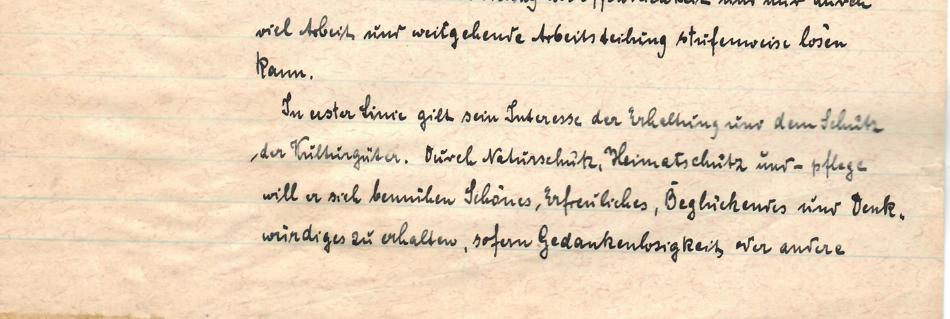 und nur durch
viel Arbeit und weitgehende Arbeitsteilung stufenweise lösen
kann.
In erster Linie gilt sein Interesse der Erhaltung und dem Schutz
der Kulturgüter. Durch Naturschutz, Heimatschutz und - pflege
will er sich bemühen Schönes, Erfreuliches, Beglückendes und Denk-
würdiges zu erhalten, sofern Gedankenlosigkeit oder andere